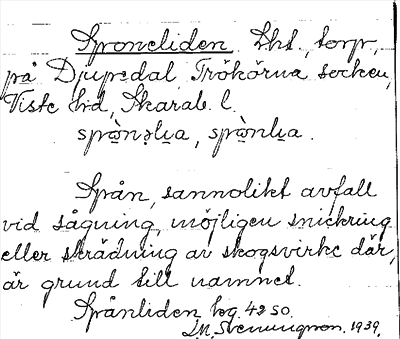 Sproneliden. Lht., torp,
på Djupedal, Trökörna socken,
Viste hd, Skarab. l.
språ̀nəlia, språ̀nlia.
Spån, sannolikt avfall
vid sågning, möjligen snickring
eller skrädning av skogsvirke där,
är grund till namnet.
Spånliden hög. 4250.
1939.